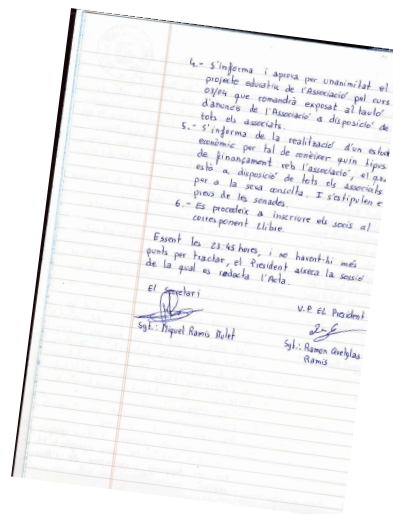 4.- S'informa i aprova per unanimitat el
projecte educatiu de l'Associació pel curs
03/04 que romandrà exposat al tauló
d'anuncis de l'Associació a disposició de
tots els associats.
5.- S'informa de la realització d'un estudi
econòmic per tal de conèixer quin tipus
de finançament reb l'associació, el qual
està a disposició de tots els associats
per a la seva consulta. I s'estipulen e
preus de les senades.
6.- Es procedeix a inscriure els socis al
corresponent Llibre.
Essent les 23:45 hores, i no havent-hi més
punts per tractar, el President aixeca la sessió
de la qual es redacta l'Acta.
El secretari
V.P. EL President
Sgt.: Miquel Ramis Molet
Sgt.: Ramon Quetglas
Ramis